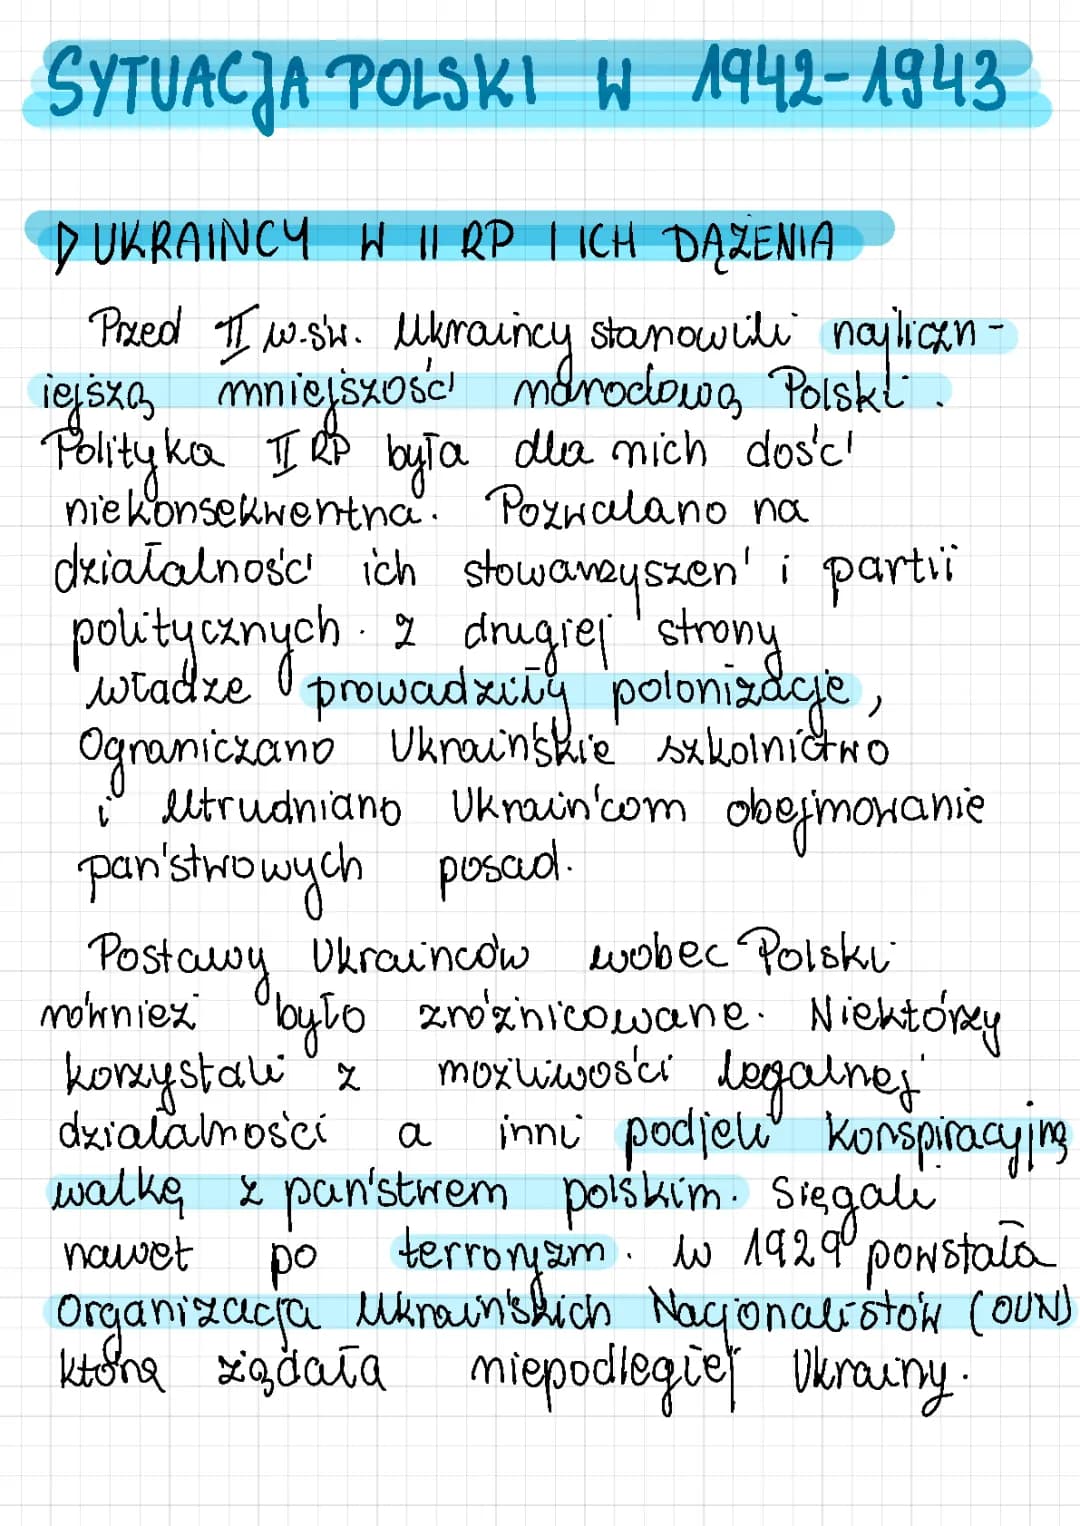 SYTUACJA POLSKI W 1942-1943
▷ UKRAINCY W II RP I ICH DĄŻENIA
Przed II w.św. Ukraińcy stanowili najliczn-
iejszą mniejszość narodową Polski.
Polityka II RP była dla nich dość
niekonsekwentna. Pozwalano na
działalność ich stowarzyszeń i partii
politycznych. Z drugiej strony
władze prowadziły polonizację,
Ograniczano Ukraińskie szkolnictwo
i utrudniano Ukraińcom obejmowanie
państwowych posad.
Postawy Ukrainców wobec Polski
również było zróżnicowane. Niektórzy
korzystali z możliwości legalnej
działalności a inni podjeli konspiracyjną
walkę z państwem polskim. Sięgali
nawet po terroryzm. W 1929 powstała
Organizacja Ukraińskich Nacjonalistów (OUN)
którą żądała niepodległej Ukrainy.